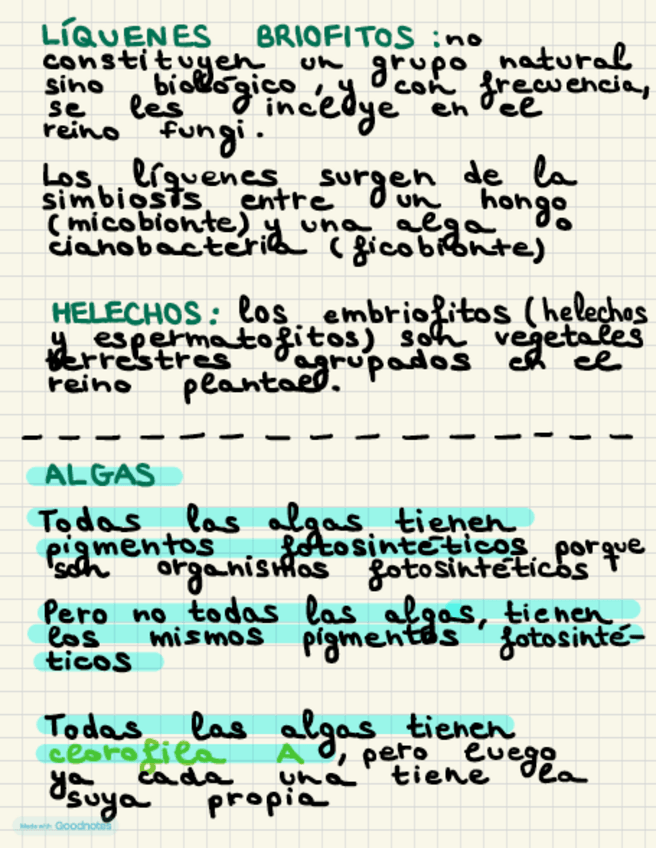 LÍQUENES BRIOFITOS : no
constituyen un grupo natural
sino biológico, y con frecuencia,
se les incluye en el
reino fungi.
Los líquenes surgen de la
simbiosis entre un hongo
(micobionte) y una alga o
cianobacteria (ficobionte)
HELECHOS: los embriofitos (helechos
y espermatofitos) son vegetales
terrestres agrupados en el
reino plantae.
ALGAS
Todas las algas tienen
pigmentos fotosintéticos porque
son organismos fotosintéticos
Pero no todas las algas, tienen
los mismos pigmentos fotosinté-
ticos
Todas las algas tienen
clorofila A, pero luego
ya cada una tiene la
suya propia
Made with Goodnotes